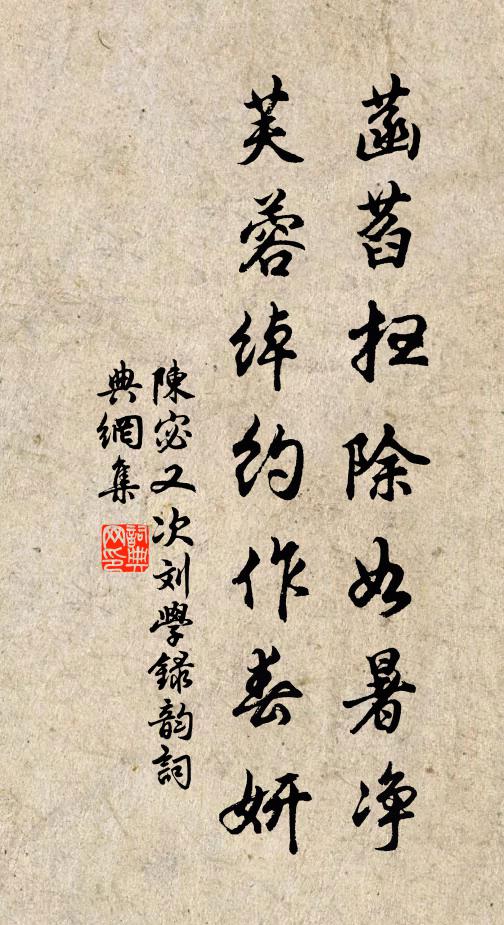 菡萏枉除如暑净
芙蓉綽約作春妍
陳宓又次刘學錄韵詞
典網集
詞典
网印